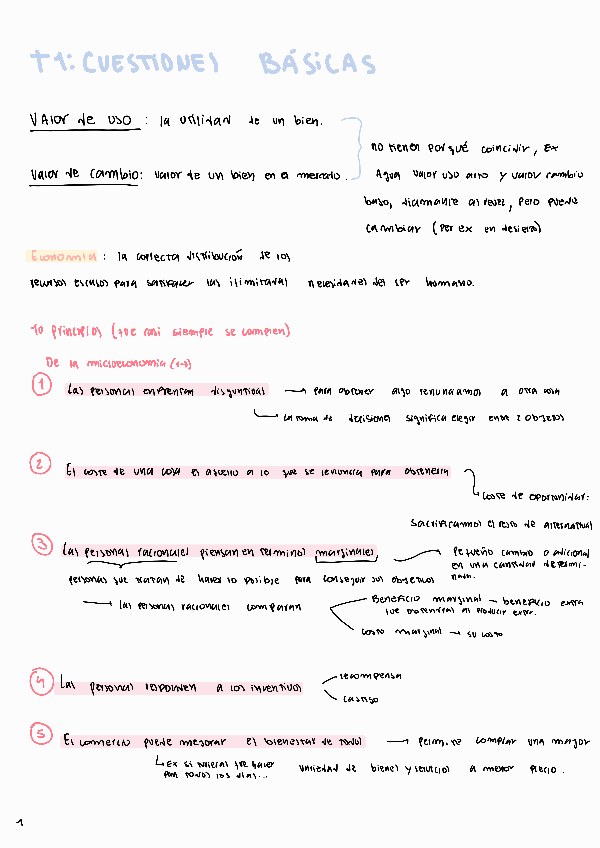 T1: CUESTIONES BÁSICAS
Valor de uso : la utilidad de un bien.
no tienen porqué coincidir, Ex
Valor de cambio: valor de un bien en el mercado.
Agua valor uso alto y valor cambio
bajo, diamante al revés, pero puede
cambiar (Per ex en desierto)
Economía : la correcta distribución de los
recursos escasos para satisfacer las ilimitadas necesidades del ser humano.
10 principios (que casi siempre se cumplen)
De la microeconomia (1-7)
1 Las personas enfrentan disyuntivas → para obtener algo renunciamos a otra cosa
La toma de decisiones significa elegir entre 2 objetos
2 El coste de una cosa es aquello a lo que se renuncia para obtenerla
Coste de oportunidad:
Sacrificamos el resto de alternativas
3 Las personas racionales piensan en terminos marginales,
Pequeño cambio o adicional
en una cantidad determi-
nada.
personas que tratan de hacer lo posible para conseguir sus objetivos
→ las personas racionales comparan
Beneficio marginal → beneficio extra
que obtendrías al producir extra.
Costo marginal → su costo
4 Las personas responden a los incentivos
recompensa
castigo
5 El comercio puede mejorar el bienestar de todos → permite comprar una mayor
Ex si tuvieras que hacer
pan todos los días...
variedad de bienes y servicios a menor precio.
1